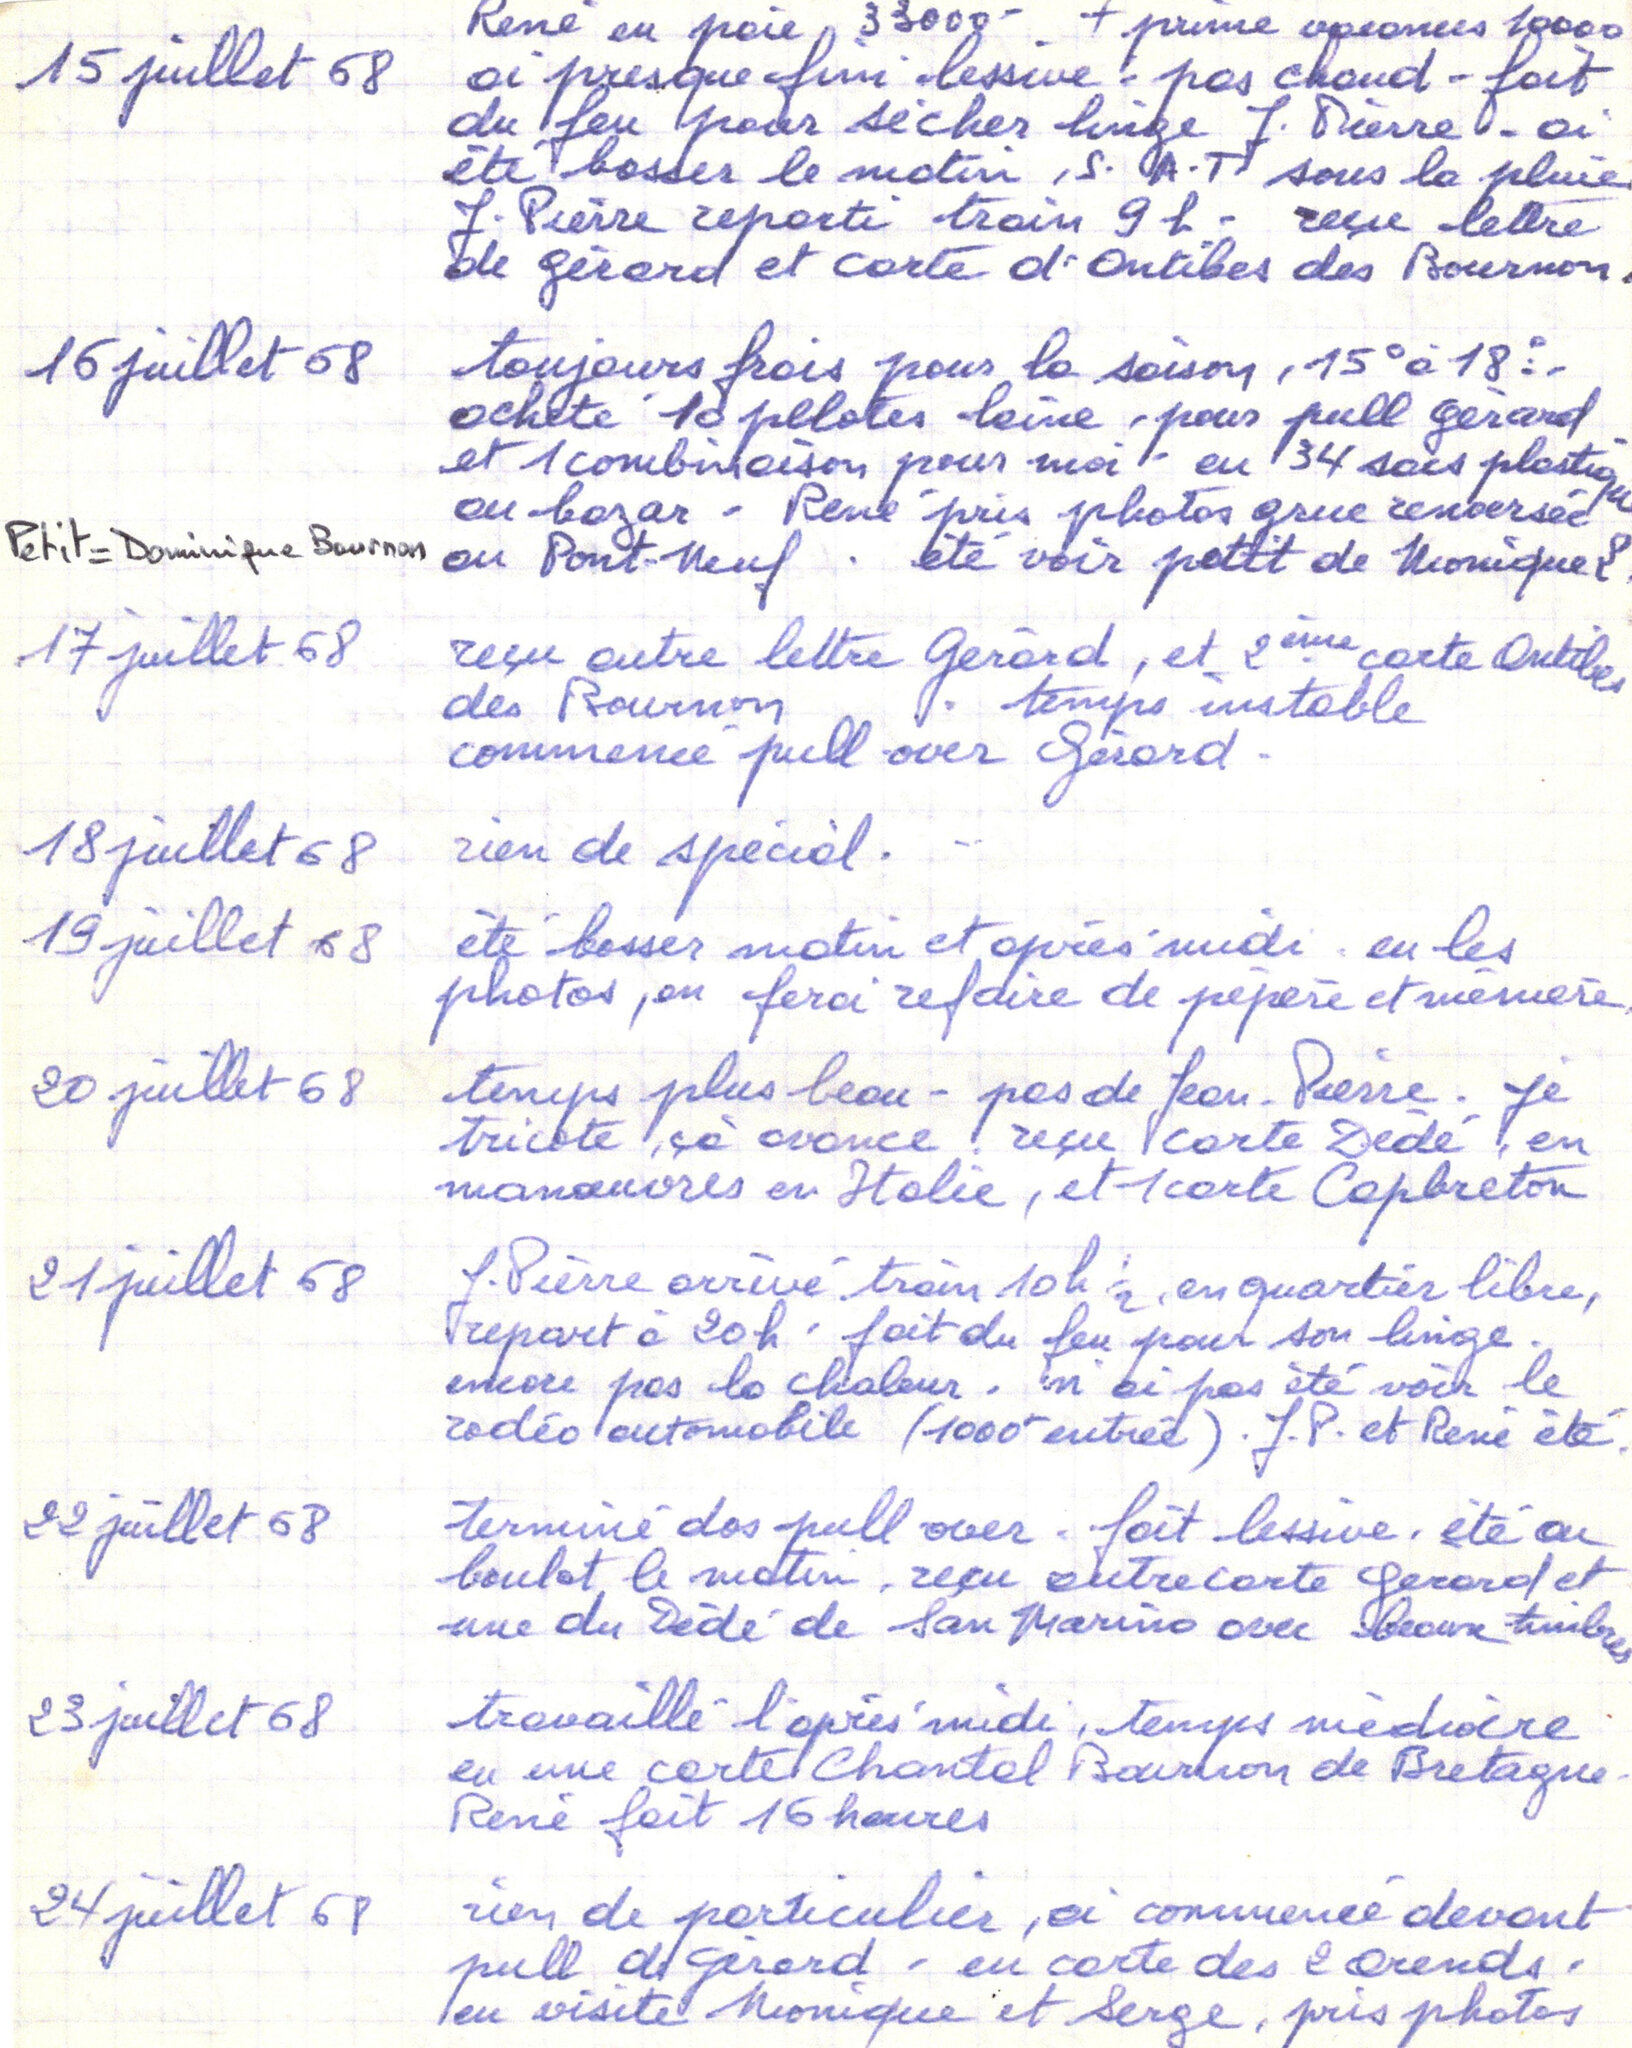 René eu paie, 33000 - + prime vacances 10000
15 juillet 68 ai presque fini lessive - pas chaud - fait
du feu pour sécher linge J. Pierre - ai
été bosser le matin, S.A.T sous la pluie.
J. Pierre reparti train 9 h - reçu lettre
de Gérard et carte d'Antibes des Bournon.
16 juillet 68 toujours frais pour la saison, 15° à 18° -
acheté 10 pelotes laine, pour pull Gérard
et 1 combinaison pour moi - eu 34 sacs plastique
au bazar - René pris photos grue renversée
Petit = Dominique Bournon au Pont-Neuf. été voir petit de Monique B.
17 juillet 68 reçu autre lettre Gérard, et 2ème carte Antibes
des Bournon. temps instable
commencé pull-over Gérard -
18 juillet 68 rien de spécial.
19 juillet 68 été bosser matin et après midi. eu les
photos, en ferai refaire de pépère et mémère.
20 juillet 68 temps plus beau - pas de Jean-Pierre. je
tricote, çà avance. reçu carte Dédé, en
manœuvres en Italie, et 1 carte Capbreton
21 juillet 68 J. Pierre arrivé train 10h 1/2, en quartier libre,
repart à 20h. fait du feu pour son linge.
encore pas la chaleur. n'ai pas été voir le
rodéo automobile (1000 - entrée). J.P. et René été.
22 juillet 68 terminé dos pull over. fait lessive. été au
boulot le matin. reçu autre carte Gérard et
une du Dédé de San Marino avec beaux timbres
23 juillet 68 travaillé l'après midi, temps médiocre
eu une carte Chantal Bournon de Bretagne -
René fait 16 heures
24 juillet 68 rien de particulier, ai commencé devant
pull de Gérard - eu carte des 2 Orends.
eu visite Monique et Serge, pris photos